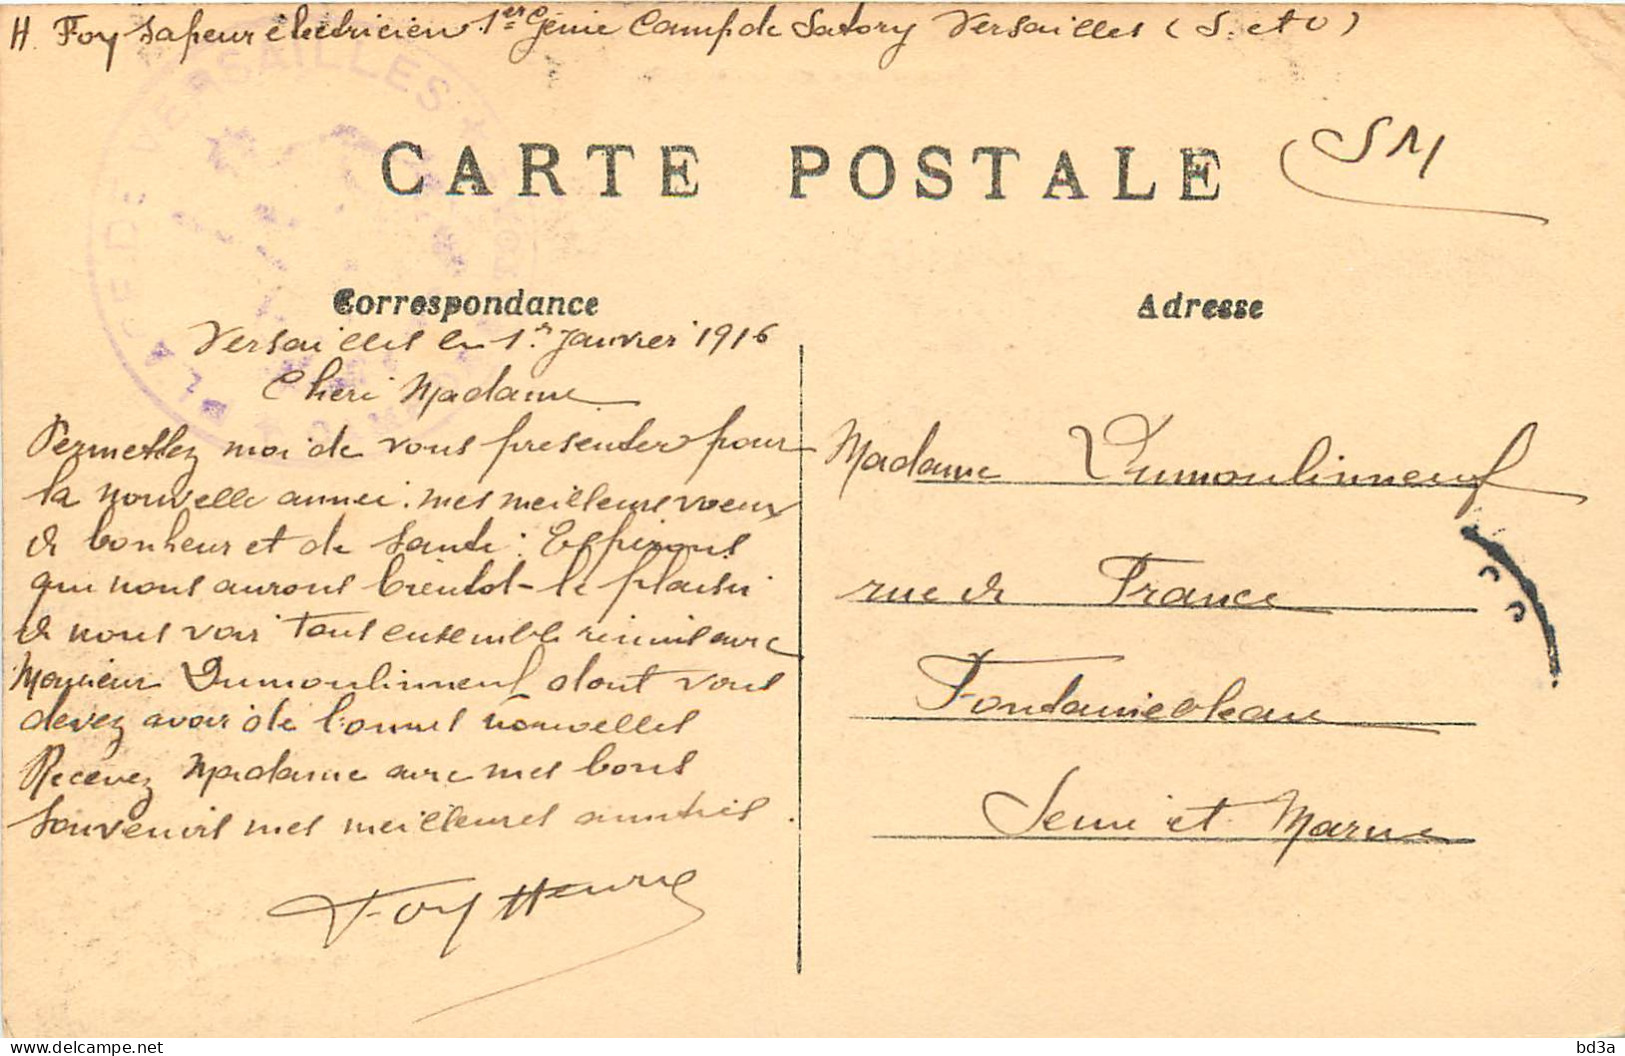 H. Foy Sapeur électricien 1er Génie Camp de Satory Versailles (S. et O)
PLACE DE VERSAILLES
CARTE POSTALE
SM
Correspondance
Versailles le 1er Janvier 1916
Cheri Madame
Permettez moi de vous presenter pour
la nouvelle année. mes meilleurs voeux
de bonheur et de Sante: Esperons
que nous aurons bientot le plaisir
de nous voir Tous ensemble réunis avec
Monsieur Dumoulinneuf dont vous
devez avoir de bonnes nouvelles
Recevez Madame avec mes bons
Souvenirs mes meilleures amitiés.
Foy Henri
Adresse
Madame Dumoulinneuf
rue de France
Fontainebleau
Seine et Marne
bd3a